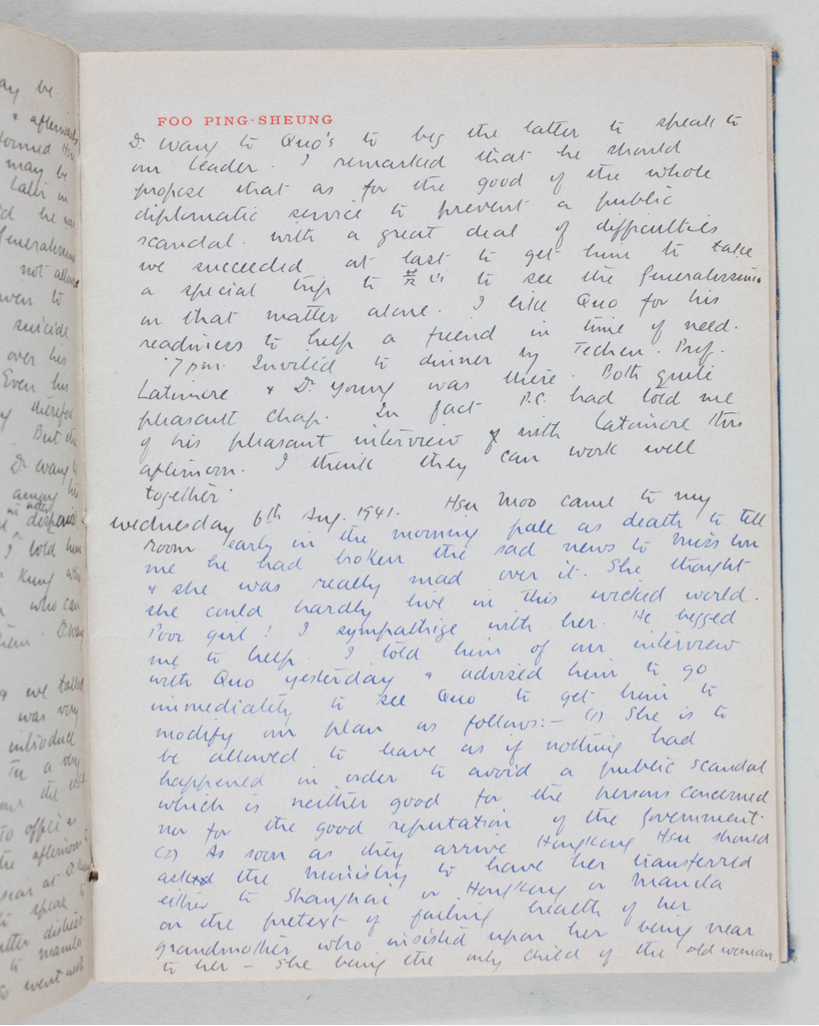 FOO PING-SHEUNG
Dr. Wang to Quo's to beg the latter to speak to
our leader. I remarked that he should
propose that as for the good of the whole
diplomatic service to prevent a public
scandal. With a great deal of difficulties
we succeeded at last to get him to take
a special trip to to see the Generalissimo
on that matter alone. I like Quo for his
readiness to help a friend in time of need.
7 p.m. Invited to dinner by Techen. Prof.
Latimore & Dr. Young was there. Both quite
pleasant chap. In fact P.C. had told me
of his pleasant interview with Latimore this
afternoon. I think they can work well
together.
Wednesday 6th Aug. 1941. Hsu Moo came to my
room early in the morning pale as death to tell
me he had broken the sad news to Miss
& she was really mad over it. She thought
she could hardly live in this wicked world.
Poor girl! I sympathize with her. He begged
me to help. I told him of our interview
with Quo yesterday & advised him to go
immediately to see Quo to get him to
modify our plan as follows:- (1) She is to
be allowed to leave as if nothing had
happened in order to avoid a public scandal
which is neither good for the persons concerned
nor for the good reputation of the Government.
(2) As soon as they arrive Hongkong Hsu should
ask the ministry to have her transferred
either to Shanghai or Hongkong or Manila
on the pretext of failing health of her
grandmother who insisted upon her being near
to her – she being the only child of the old woman.
ay be.
& afterwards
may be
later in
he was
Generalissimo
not allowed
to
suicide
over his
Even his
therefore
But
Dr. Wang
away
after
I told him
Kung who
who can
we talked
was very
introduce
In a very
to office
the afternoon
at
speak to
to Manila
went